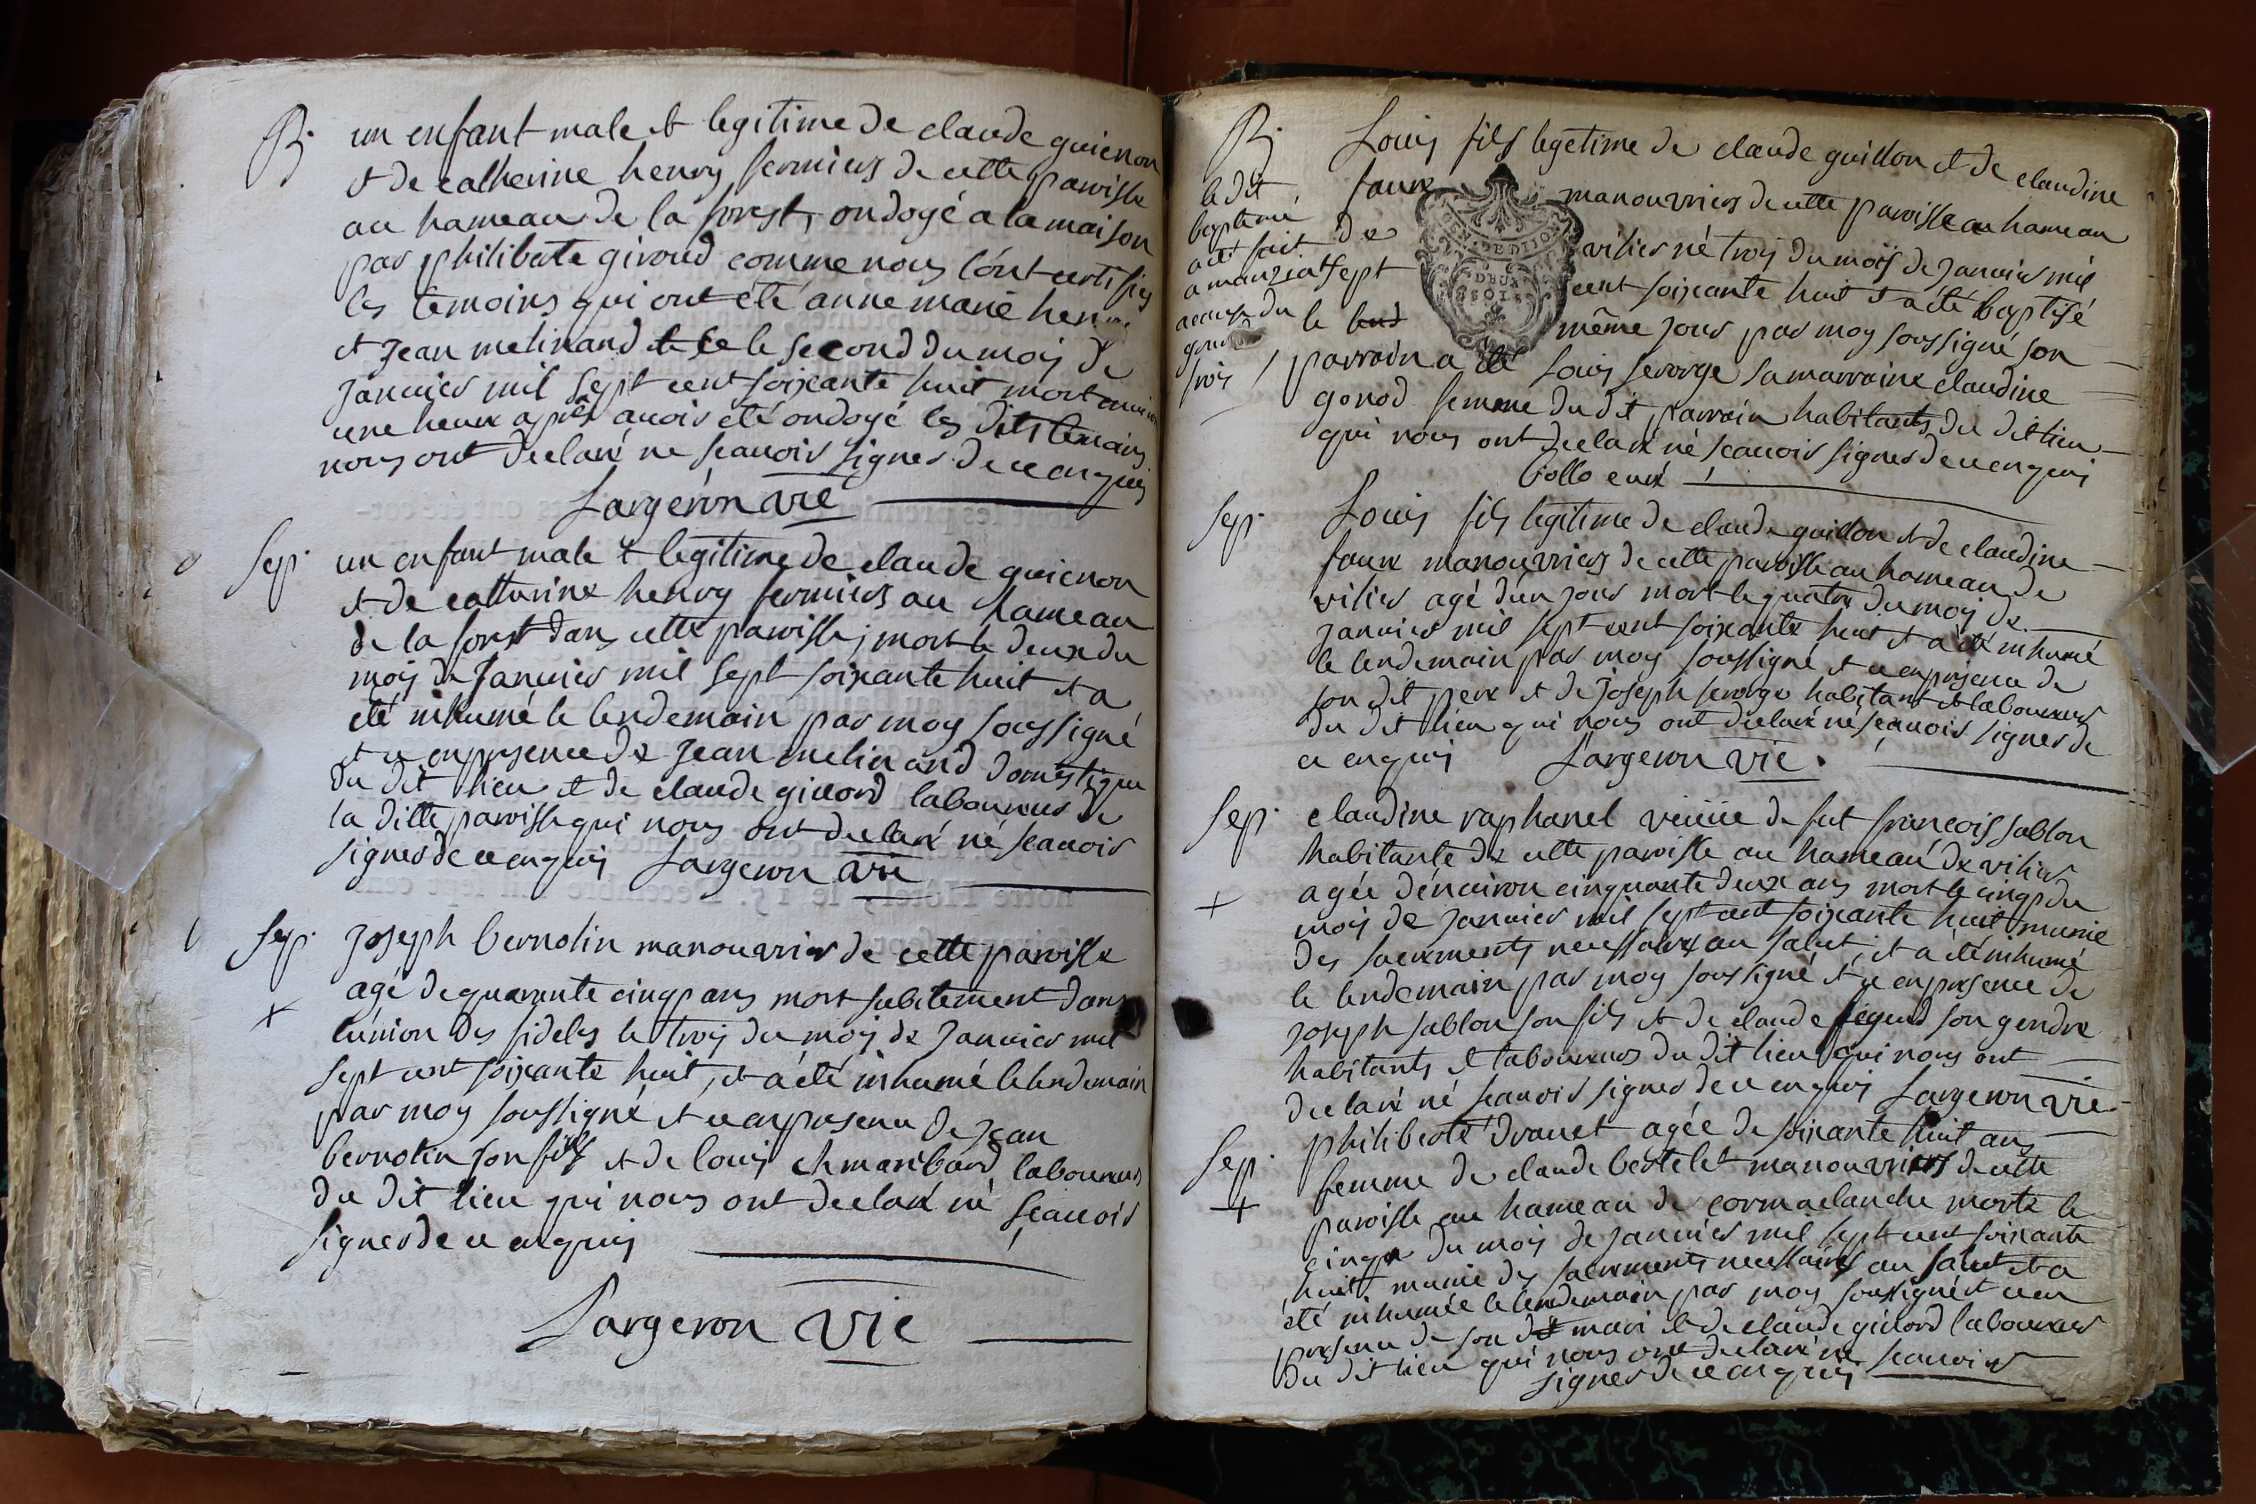 B. un enfant male et legitime de claude guienon
et de catherine henry fermiers de cette paroisse
au hameau de la forest, ondoyé a la maison
par philiberte giroud comme nous l'ont certifies
les temoins qui ont été anne marie henry
et Jean melinand le second du mois de
Janvier mil sept cent soixante huit mort environ
une heure après avoir été ondoyé les dits temoins
nous ont declaré ne scavoir signer de ce enquis
Largeron vic
Sep. un enfant male et legitime de claude guienon
et de catherine henry fermiers au hameau
de la forest dans cette paroisse, mort le deux du
mois de Janvier mil sept soixante huit et a
été inhumé le lendemain par moy soussigné
et ce en presence de Jean melinand domestique
du dit lieu et de claude giuord laboureurs de
la ditte paroisse qui nous ont declaré né scavoir
signer de ce enquis Largeron vic
Sep. Joseph bernolin manouvrier de cette paroisse
+ agé de quarante cinq ans mort subitement dans
l'union des fideles le trois du mois de Janvier mil
sept cent soixante huit, et a été inhumé le lendemain
par moy soussigné et ce en presence de Jean
bernolin son fils et de louis chmaribard laboureurs
du dit lieu qui nous ont declaré né scavoir
signer de ce enquis
Largeron vic
B. Louis fils legetime de claude guillon et de claudine
faure manouvriers de cette paroisse au hameau
de vilier né trois du mois de Janvier mil
sept cent soixante huit et a été baptisé
le même jour par moy soussigné son
parrain a été louis serorge sa marraine claudine
gonod femme du dit parrain habitants du dit lieu
qui nous ont declaré né scavoir signer de ce enquis
bollo curé
le dit
baptemé
a été fait
a manziat
a cause du
grand
frois
Sep. Louis fils legitime de claude guillon et de claudine
faure manouvriers de cette paroisse au hameau de
vilier agé d'un jour mort le quatre du mois de
Janvier mil sept cent soixante huit et a été inhumé
le lendemain par moy soussigné et ce en presence de
son dit pere et de Joseph serorge habitant et laboureurs
du dit lieu qui nous ont declaré né scavoir signer de
ce enquis Largeron vic.
Sep. claudine raphanel veuve de fut françois sablon
habitante de cette paroisse au hameau de vilier
+ agée d'environ cinquante deux ans mort le cinq du
mois de Janvier mil sept cent soixante huit munie
des sacrements necessaires au salut, et a été inhumé
le lendemain par moy soussigné et ce en presence de
Joseph sablon son fils et de claude son gendre
habitants et laboureurs du dit lieu qui nous ont
declaré né scavoir signer de ce enquis Largeron vic
Sep. philiberte drouet agée de soixante huit ans
+ femme de claude bertelet manouvriers de cette
paroisse au hameau de cormaclanche morte le
cinq du mois de Janvier mil sept cent soixante
huit munie des sacrements necessaires au salut et a
été inhumée le lendemain par moy soussigné et ce en
presence de son dit mari et de claude giuord laboureurs
du dit lieu qui nous ont declaré né scavoir
signer de ce enquis